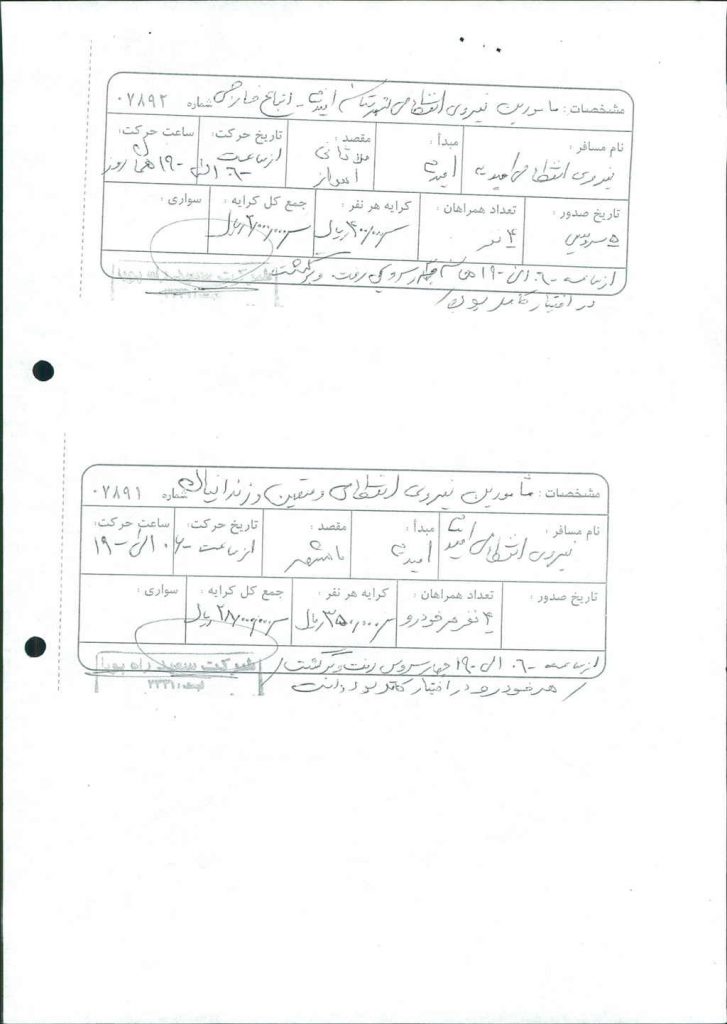 مشخصات : مامورین نیروی انتظامی شهرستان امیدیه - اتباع خارجی شماره ۰۷۸۹۲
نام مسافر : نیروی انتظامی امیدیه
مبدأ : امیدیه
مقصد : ملاثانی اهواز
تاریخ حرکت: از ساعت ۰۶- الی
ساعت حرکت: ۱۹- همان روز
تاریخ صدور : ۵ سرویس
تعداد همراهان : ۴ نفر
کرایه هر نفر : ریال
جمع کل کرایه : ریال
سواری :
از ساعت ۰۶- الی ۱۹- سرویس رفت و برگشت
در اختیار کامل بوده
شرکت سعید راه پویا
مشخصات : مامورین نیروی انتظامی و متهمین و زندانیان شماره ۰۷۸۹۱
نام مسافر : نیروی انتظامی امیدیه
مبدأ : امیدیه
مقصد : ماهشهر
تاریخ حرکت : از ساعت ۰۶ الی
ساعت حرکت: ۱۹-
تاریخ صدور :
تعداد همراهان : ۴ نفر هر خودرو
کرایه هر نفر : ۳۵۰۰۰۰۰ ریال
جمع کل کرایه : ۲۸۰۰۰۰۰۰ ریال
سواری :
از ساعت ۰۶- الی ۱۹- چهار سرویس رفت و برگشت
هر خودرو در اختیار کامل بوده است
شرکت سعید راه پویا